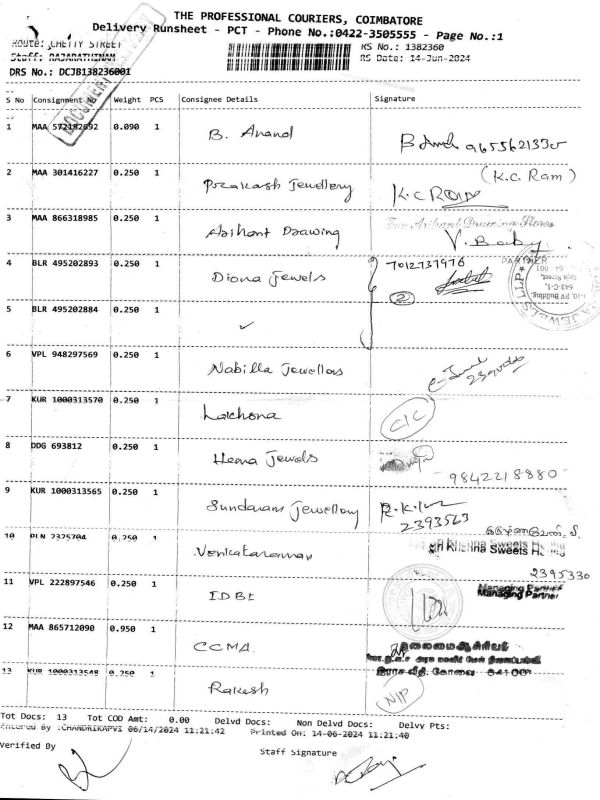 THE PROFESSIONAL COURIERS, COIMBATORE
Delivery Runsheet - PCT - Phone No.:0422-3505555 - Page No.:1
Route: CHETTY STREET
RS No.: 1382360
Staff: RAJARATHINAM
RS Date: 14-Jun-2024
DRS No.: DCJB138236001
DOCUMENT
S No Consignment No Weight PCS Consignee Details Signature
1 MAA 572182692 0.090 1 B. Anand 9655621330
2 MAA 301416227 0.250 1 Prakash Jewellery K.C RAM (K.C. Ram)
3 MAA 866318985 0.250 1 Arihant Drawing For Arihant Drawing Stores
V. Baby
PARTNER
4 BLR 495202893 0.250 1 Diona Jewels 7012737976
2
5 BLR 495202884 0.250 1 ✓
6 VPL 948297569 0.250 1 Nabilla Jewellers
7 KUR 1000313570 0.250 1 Lakhona C/C
8 DDG 693812 0.250 1 Hema Jewels 9842218880
9 KUR 1000313565 0.250 1 Sundaram Jewellery
2393563
10 PLN 2325704 0.250 1 Venkataraman Sri Krishna Sweets
2395330
11 VPL 222897546 0.250 1 IDBI Managing Partner
12 MAA 865712090 0.950 1 CCMA
13 KUR 1000313548 0.250 1 Rakesh N/P
Tot Docs: 13 Tot COD Amt: 0.00 Delvd Docs: Non Delvd Docs: Delvy Pts:
Entered By :CHANDRIKAPVI 06/14/2024 11:21:42 Printed On: 14-06-2024 11:21:40
Verified By
Staff Signature